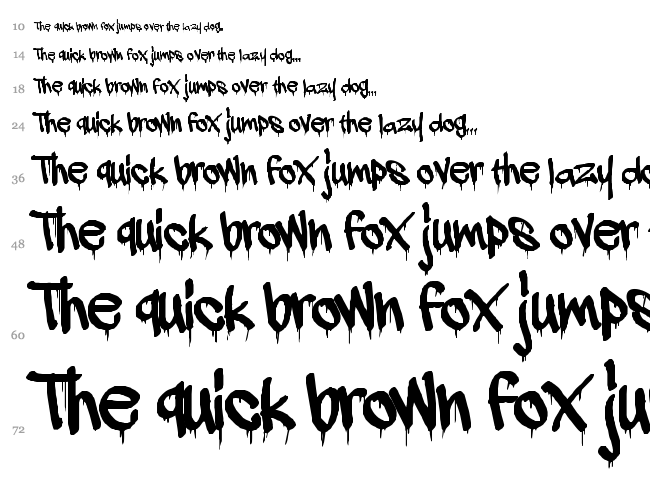 10 The quick brown fox jumps over the lazy dog...
14 The quick brown fox jumps over the lazy dog...
18 The quick brown fox jumps over the lazy dog...
24 The quick brown fox jumps over the lazy dog...
36 The quick brown fox jumps over the lazy do
48 The quick brown fox jumps over
60 The quick brown fox jumps
72 The quick brown fox ju